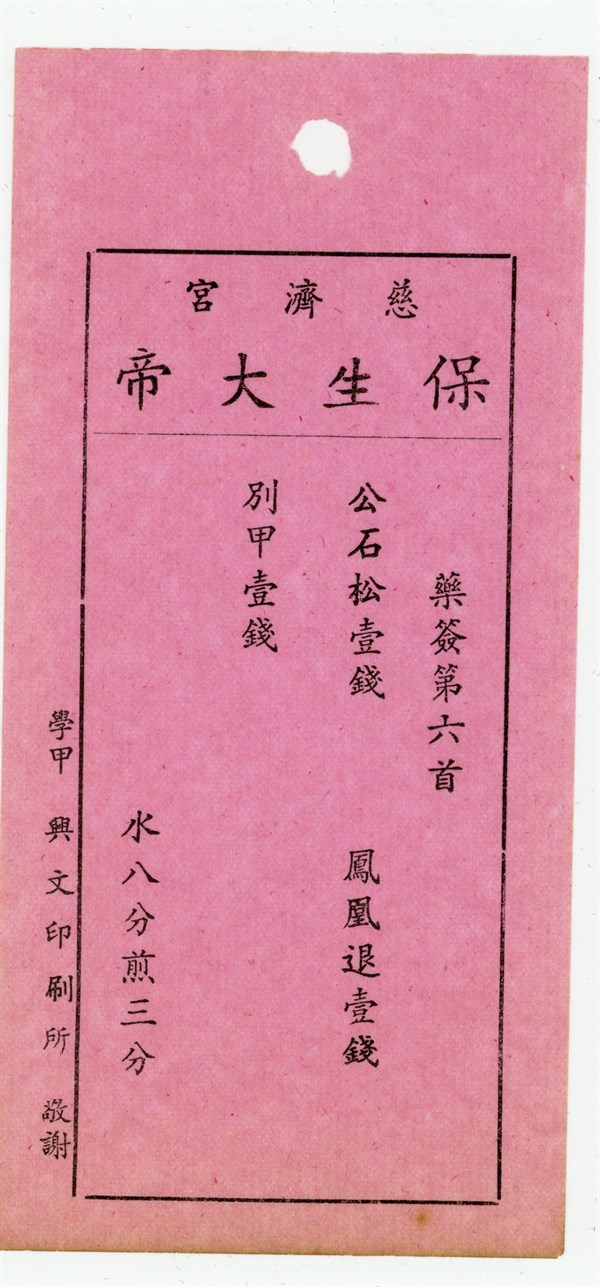 慈濟宮
保生大帝
藥簽第六首
公石松壹錢　鳳凰退壹錢
別甲壹錢
水八分煎三分
學甲　興文印刷所　敬謝